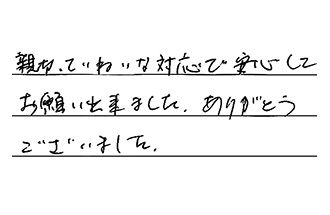 親切、ていねいな対応で安心して
お願い出来ました。ありがとう
ございました。